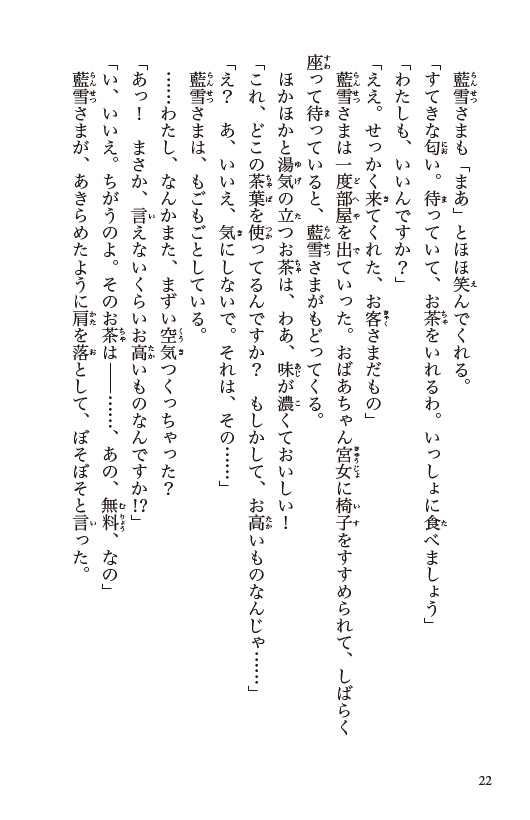 藍雪さまも「まあ」とほほ笑んでくれる。
「すてきな匂い。待っていて、お茶をいれるわ。いっしょに食べましょう」
「わたしも、いいんですか？」
「ええ。せっかく来てくれた、お客さまだもの」
藍雪さまは一度部屋を出ていった。おばあちゃん宮女に椅子をすすめられて、しばらく
座って待っていると、藍雪さまがもどってくる。
ほかほかと湯気の立つお茶は、わあ、味が濃くておいしい！
「これ、どこの茶葉を使ってるんですか？　もしかして、お高いものなんじゃ……」
「え？　あ、いいえ、気にしないで。それは、その……」
藍雪さまは、もごもごとしている。
……わたし、なんかまた、まずい空気つくっちゃった？
「あっ！　まさか、言えないくらいお高いものなんですか!?」
「い、いいえ。ちがうのよ。そのお茶は――……、あの、無料、なの」
藍雪さまが、あきらめたように肩を落として、ぼそぼそと言った。
22